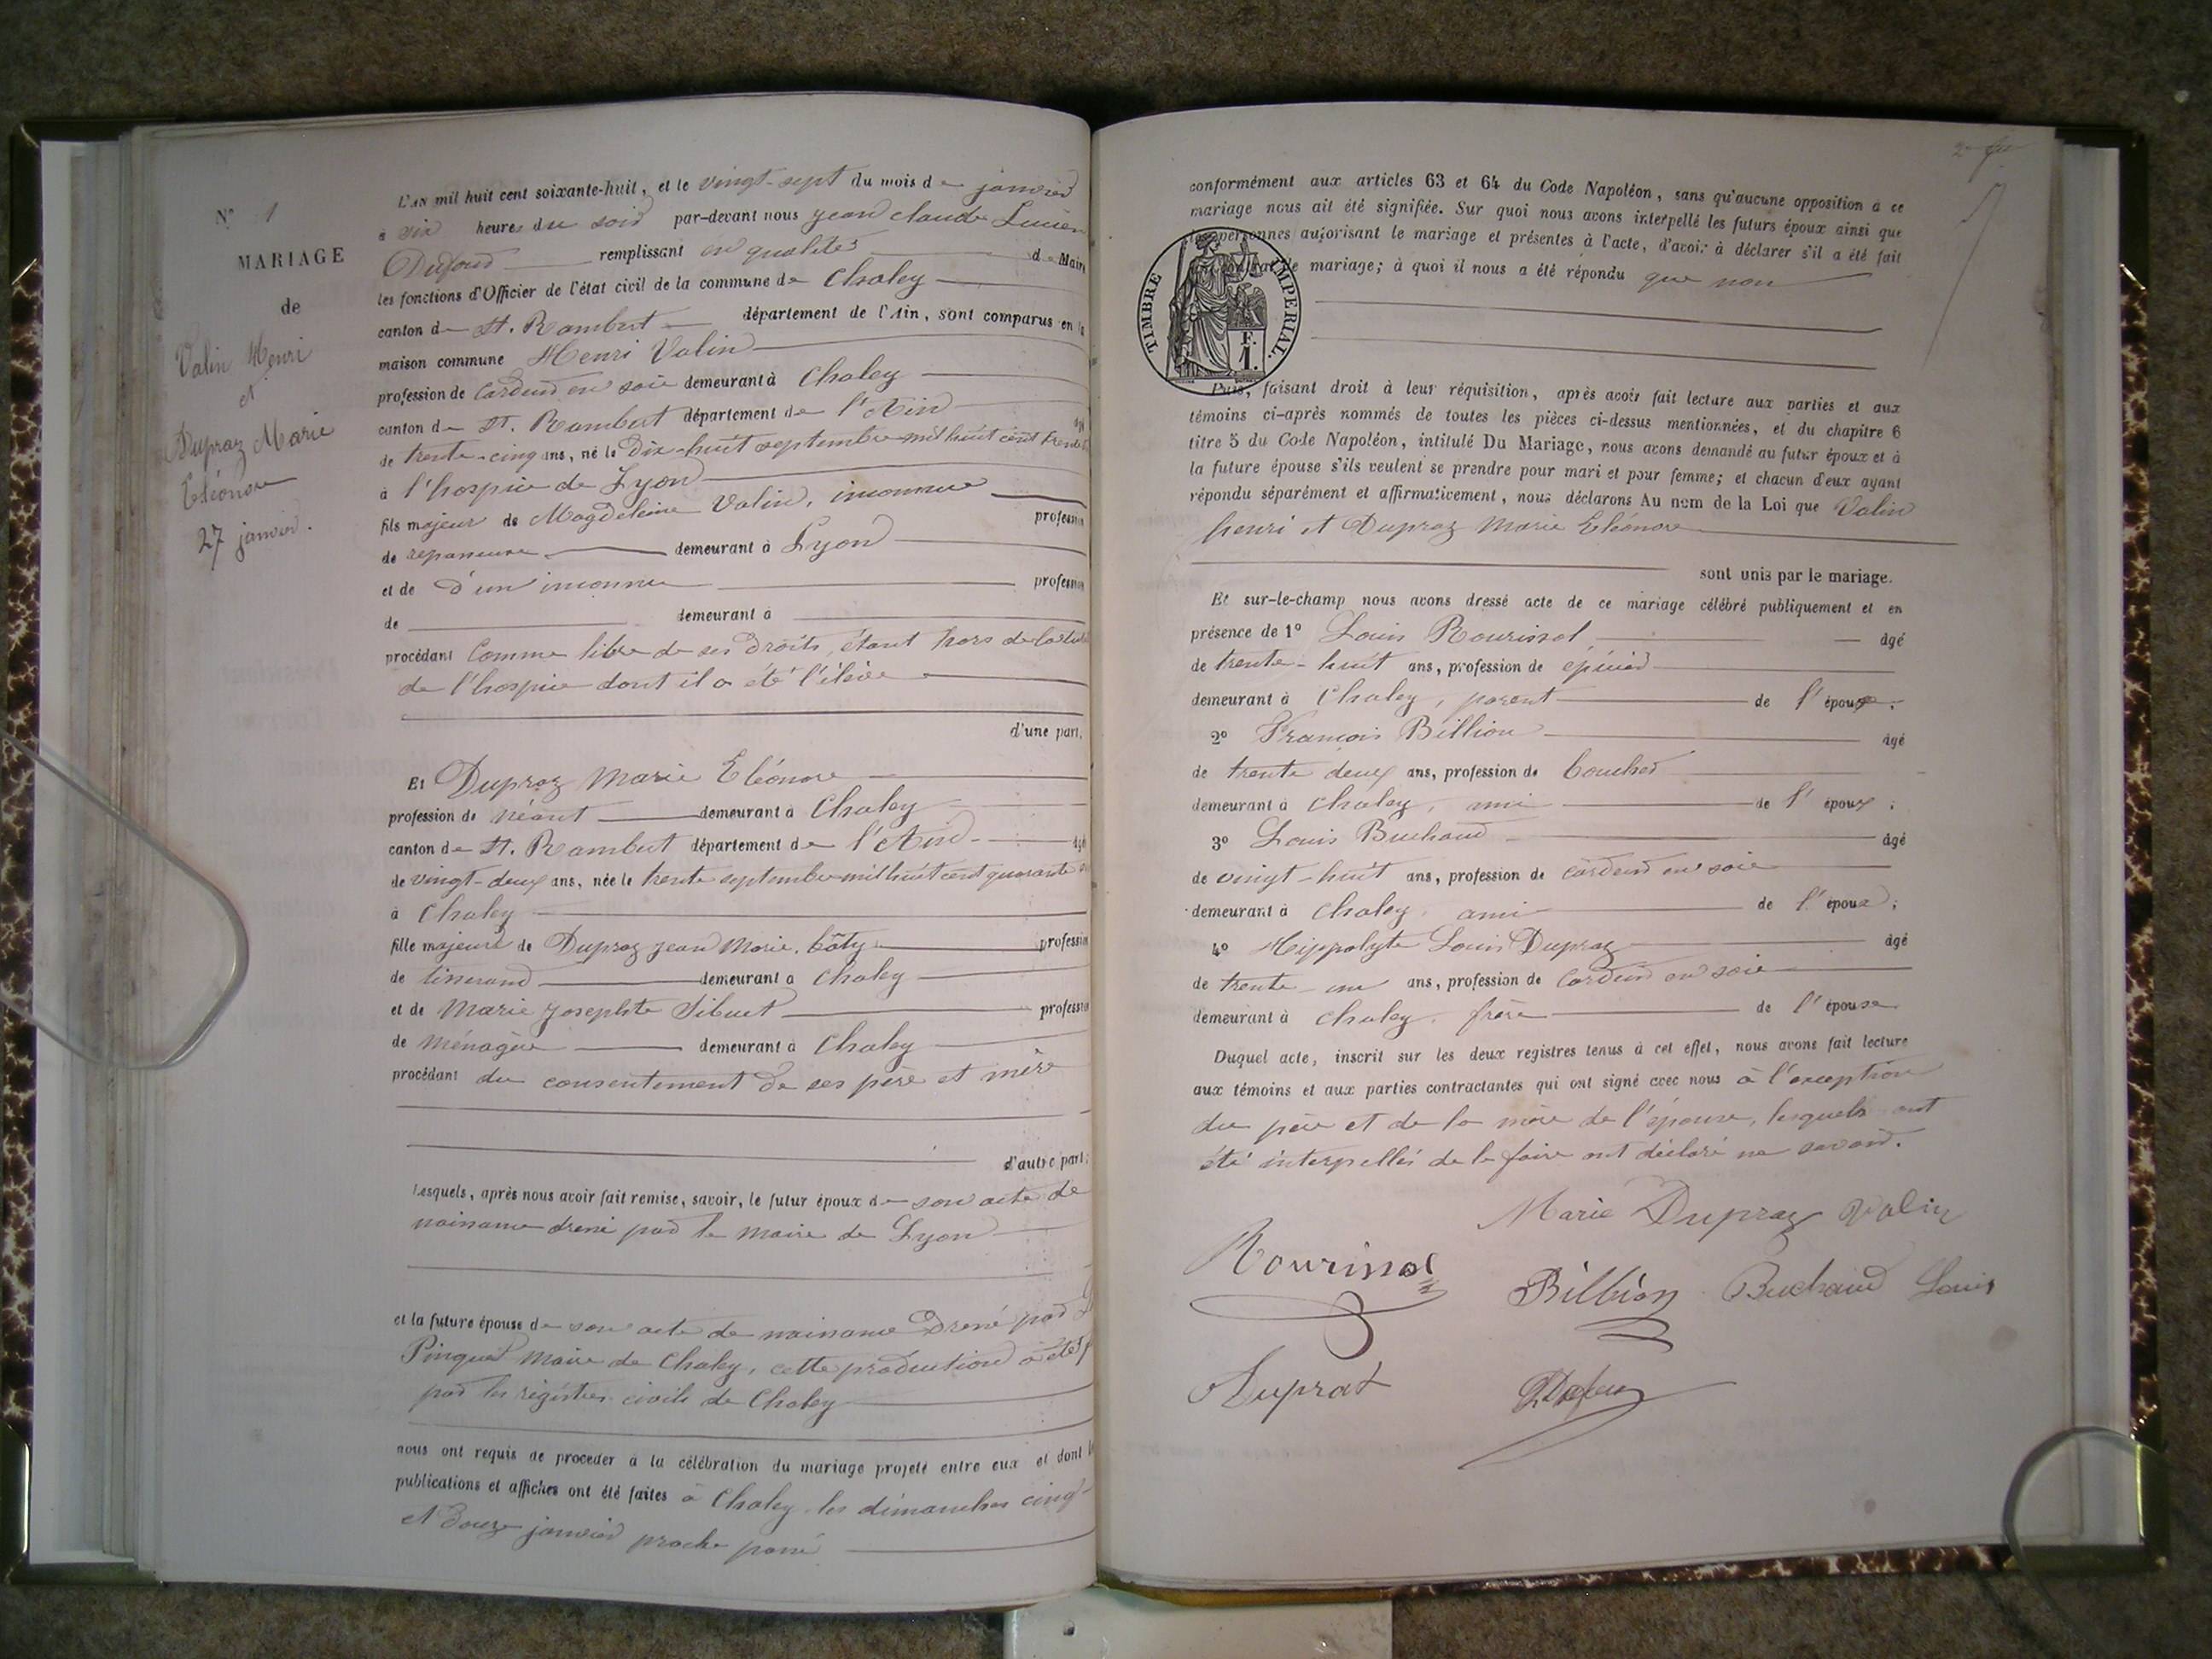 N° 1
MARIAGE
de
Valin Henri
et
Dupraz Marie
Eléonore
27 janvier.
L'AN mil huit cent soixante-huit, et le vingt-sept du mois de janvier
à six heures du soir par-devant nous jean claude Lucien
Dufour remplissant en qualité de Maire
les fonctions d'Officier de l'état civil de la commune de Chaley
canton de St. Rambert département de l'Ain, sont comparus en la
maison commune Henri Valin
profession de Cardeur en soie demeurant à Chaley
canton de St. Rambert département de l'Ain âgé
de trente-cinq ans, né le Dix-huit septembre mil huit cent trente
à l'hospice de Lyon
fils majeur de Magdeleine Valin, inconnue profession
de demeurant à Lyon
et de d'un inconnu profession
de demeurant à
procédant Comme libre de ses droits, étant hors de la
de l'hospice dont il a été l'élève
d'une part.
Et Dupraz Marie Eléonore
profession de néant demeurant à Chaley
canton de St. Rambert département de l'Ain âgé
de vingt-deux ans, née le trente septembre mil huit cent quarante
à Chaley
fille majeure de Dupraz jean Marie, bâty profession
de tisserand demeurant à Chaley
et de Marie josephte Sibuet profession
de ménagère demeurant à Chaley
procédant du consentement de ses père et mère
d'autre part;
Lesquels, après nous avoir fait remise, savoir, le futur époux de son acte de
naissance dressé par le maire de Lyon
et la future épouse de son acte de naissance Dressé par
Pinquet Maire de Chaley, cette production a été
par les régistres civils de Chaley
nous ont requis de procéder à la célébration du mariage projeté entre eux et dont
publications et affiches ont été faites à Chaley les dimanches cinq
et Douze janvier proche passé
conformément aux articles 63 et 64 du Code Napoléon, sans qu'aucune opposition à ce
mariage nous ait été signifiée. Sur quoi nous avons interpellé les futurs époux ainsi que
personnes autorisant le mariage et présentes à l'acte, d'avoir à déclarer s'il a été fait
de mariage; à quoi il nous a été répondu que non
TIMBRE IMPERIAL.
F.
1.
Puis, faisant droit à leur réquisition, après avoir fait lecture aux parties et aux
témoins ci-après nommés de toutes les pièces ci-dessus mentionnées, et du chapitre 6
titre 5 du Code Napoléon, intitulé Du Mariage, nous avons demandé au futur époux et à
la future épouse s'ils veulent se prendre pour mari et pour femme; et chacun d'eux ayant
répondu séparément et affirmativement, nous déclarons Au nom de la Loi que Valin
henri et Dupraz Marie Eléonore
sont unis par le mariage.
Et sur-le-champ nous avons dressé acte de ce mariage célébré publiquement et en
présence de 1° Louis Rourissol âgé
de trente-huit ans, profession de épicier
demeurant à Chaley, parent de l'époux.
2° François Billion âgé
de trente deux ans, profession de boucher
demeurant à Chaley, ami de l'époux;
3° Louis Buchaud âgé
de vingt-huit ans, profession de cardeur en soie
demeurant à Chaley, ami de l'époux;
4° Hippolyte Louis Dupraz âgé
de trente-un ans, profession de Cardeur en soie
demeurant à Chaley, frère de l'épouse
Duquel acte, inscrit sur les deux registres tenus à cet effet, nous avons fait lecture
aux témoins et aux parties contractantes qui ont signé avec nous à l'exception
du père et de la mère de l'épouse, lesquels ont
été interpellés de le faire ont déclaré ne savoir.
Marie Dupraz Valin
Rourissol
Billion Buchaud Louis
Duprat